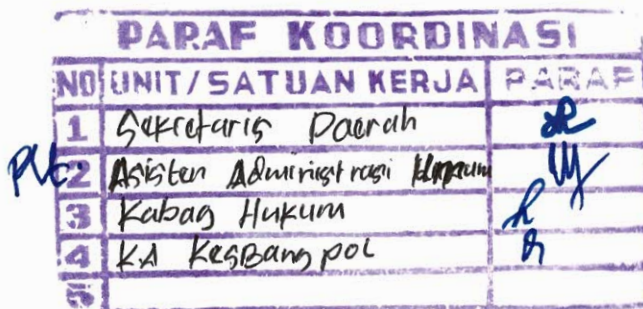 PARAF KOORDINASI
NO UNIT/SATUAN KERJA PARAF
1 Sekretaris Daerah
Plt. 2 Asisten Administrasi Umum
3 Kabag Hukum
4 KA KesBangpol
5